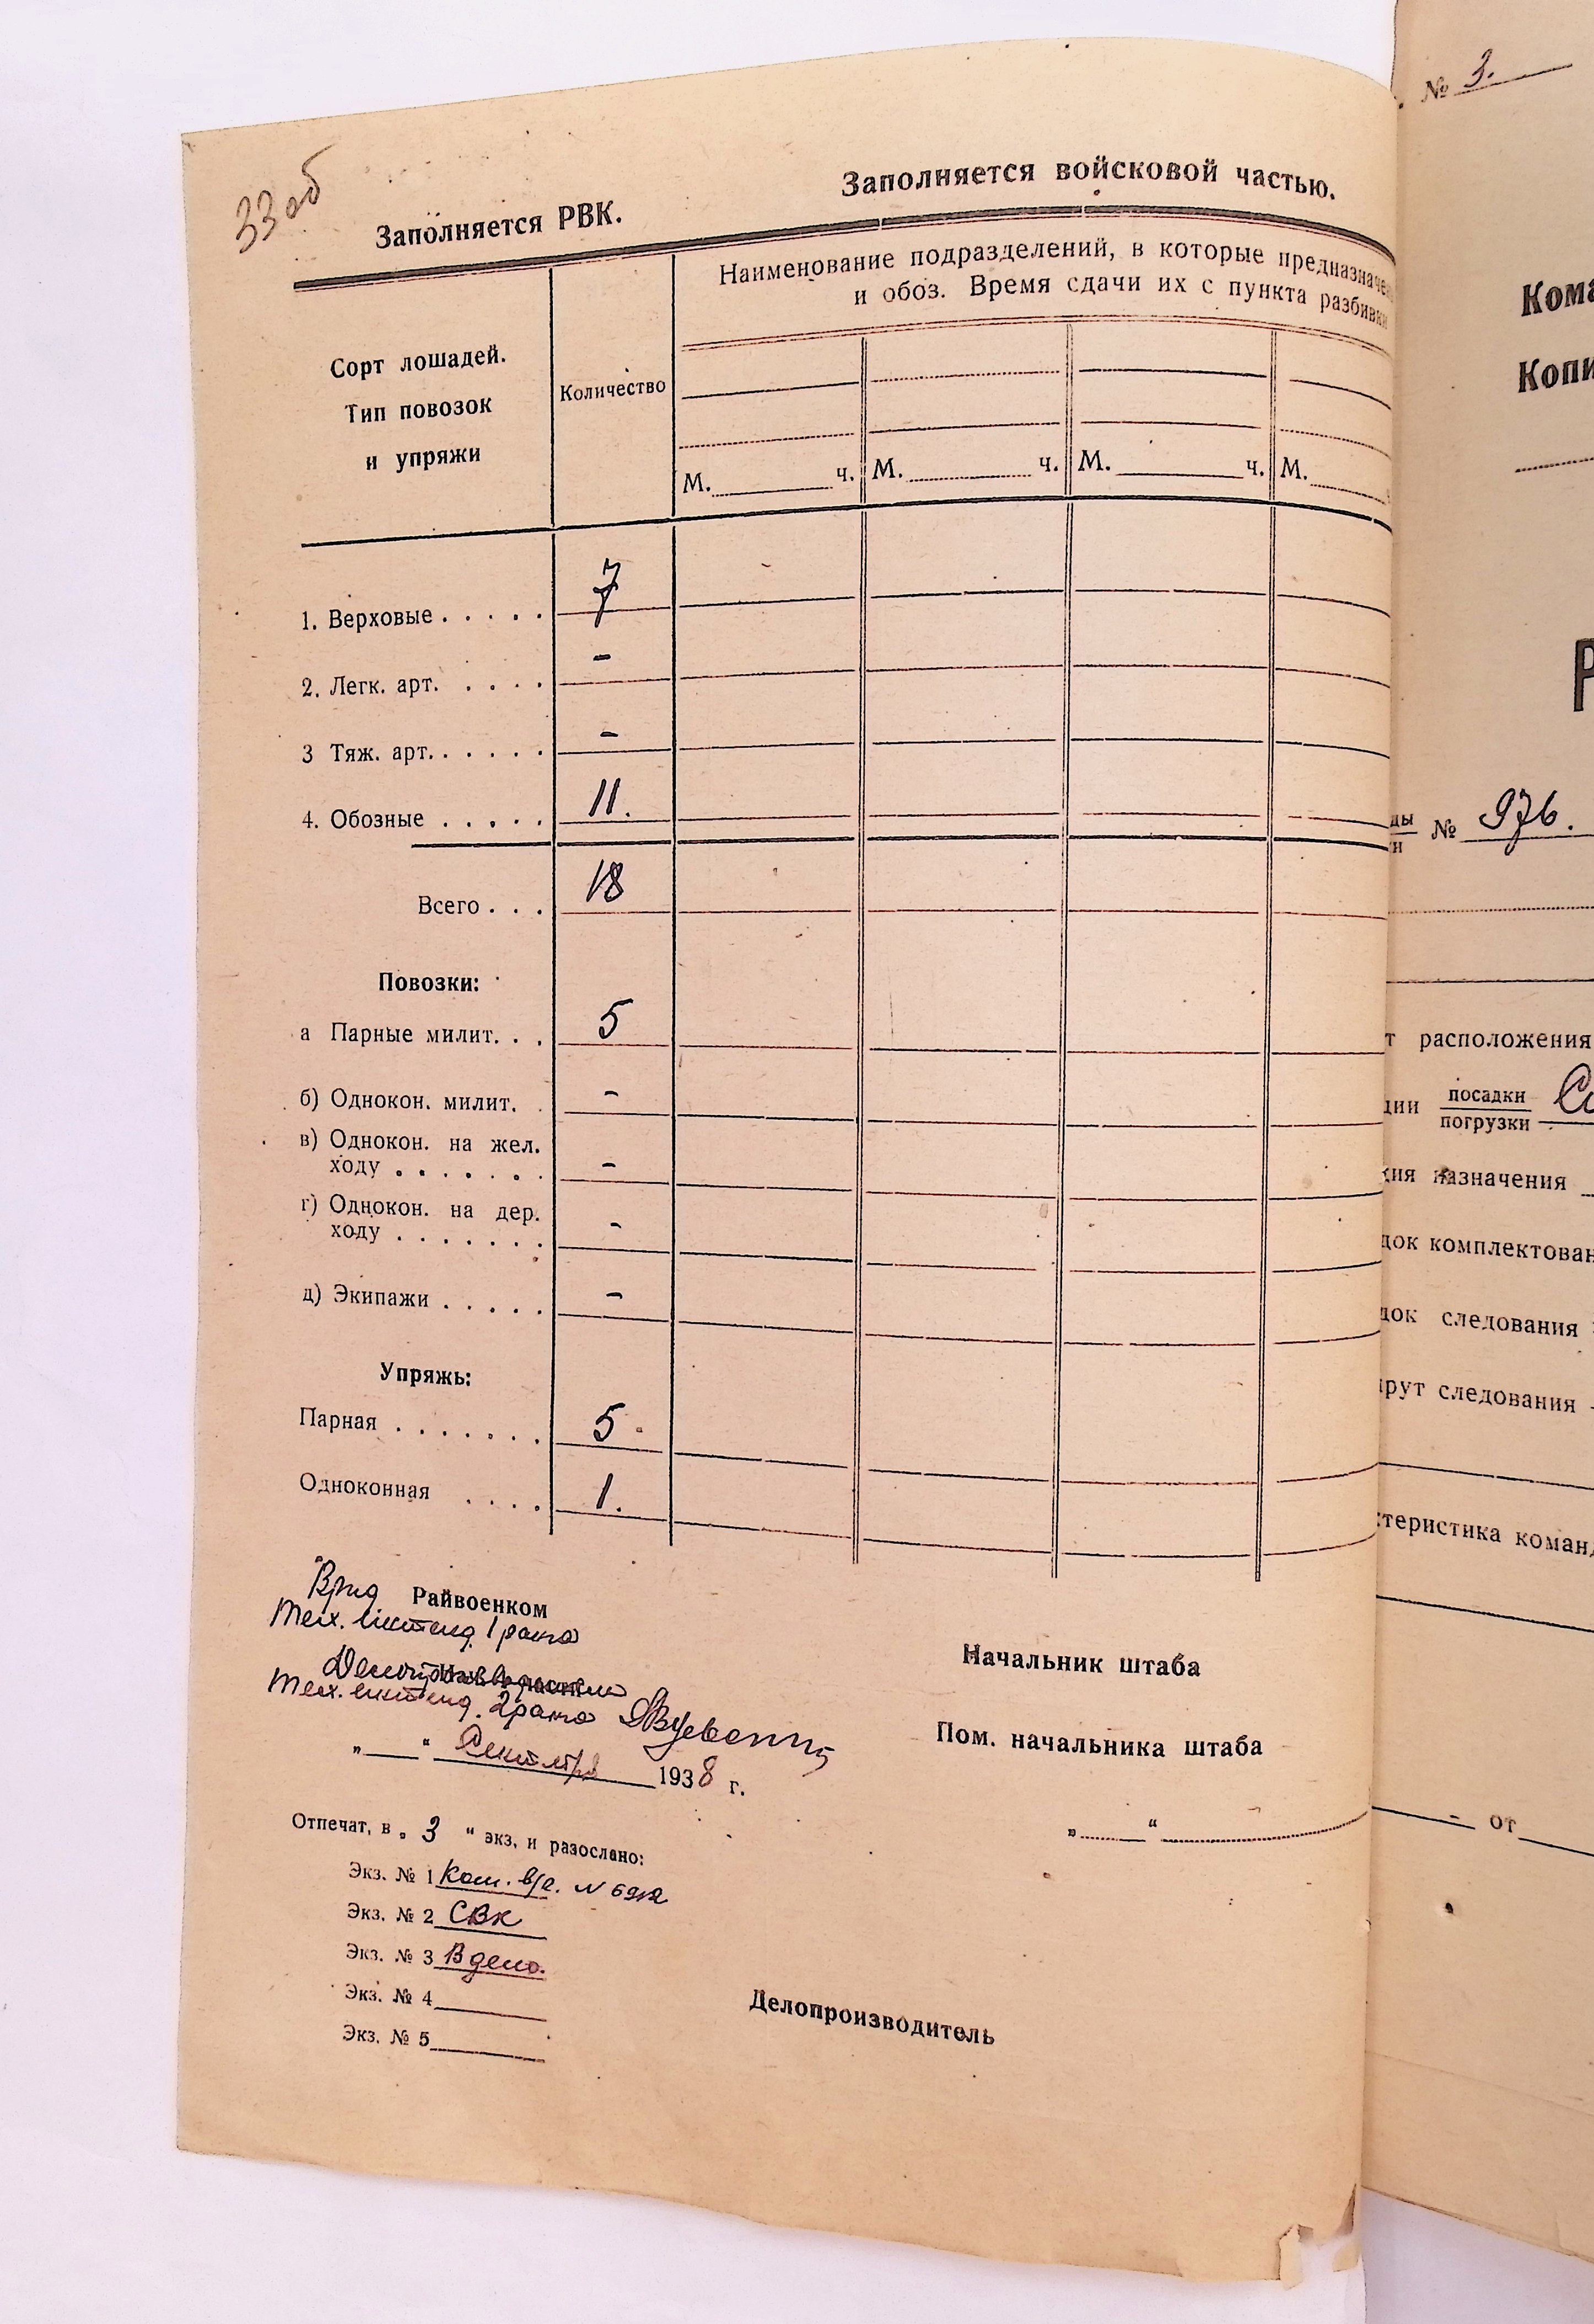 33 об
Заполняется РВК.
Заполняется войсковой частью.
Сорт лошадей.
Тип повозок
и упряжи
Количество
Наименование подразделений, в которые предназначе
и обоз. Время сдачи их с пункта разбивки
М. ч. М. ч. М. ч. М.
1. Верховые . . . . . 7
2. Легк. арт. . . . . -
3 Тяж. арт. . . . . . -
4. Обозные . . . . . 11.
Всего . . . 18
Повозки:
а Парные милит. . . 5
б) Однокон. милит. . -
в) Однокон. на жел.
ходу . . . . . . . -
г) Однокон. на дер.
ходу . . . . . . . -
д) Экипажи . . . . . -
Упряжь:
Парная . . . . . . . 5
Одноконная . . . . 1.
Врид Райвоенком
Тех. интенд. 1 ранга
Тех. интенд. 2 ранга
„ “ Сентября 1938 г.
Начальник штаба
Пом. начальника штаба
„ “
Отпечат. в „ 3 “ экз. и разослано:
Экз. № 1 Ком. в/ч.
Экз. № 2 СВК
Экз. № 3 В дело.
Экз. № 4
Экз. № 5
Делопроизводитель
№ 3.
Кома
Копи
Р
ды
и
№ 976.
т расположения
ции посадки
погрузки
ция назначения
док комплектован
док следования
рут следования
ктеристика команд
от